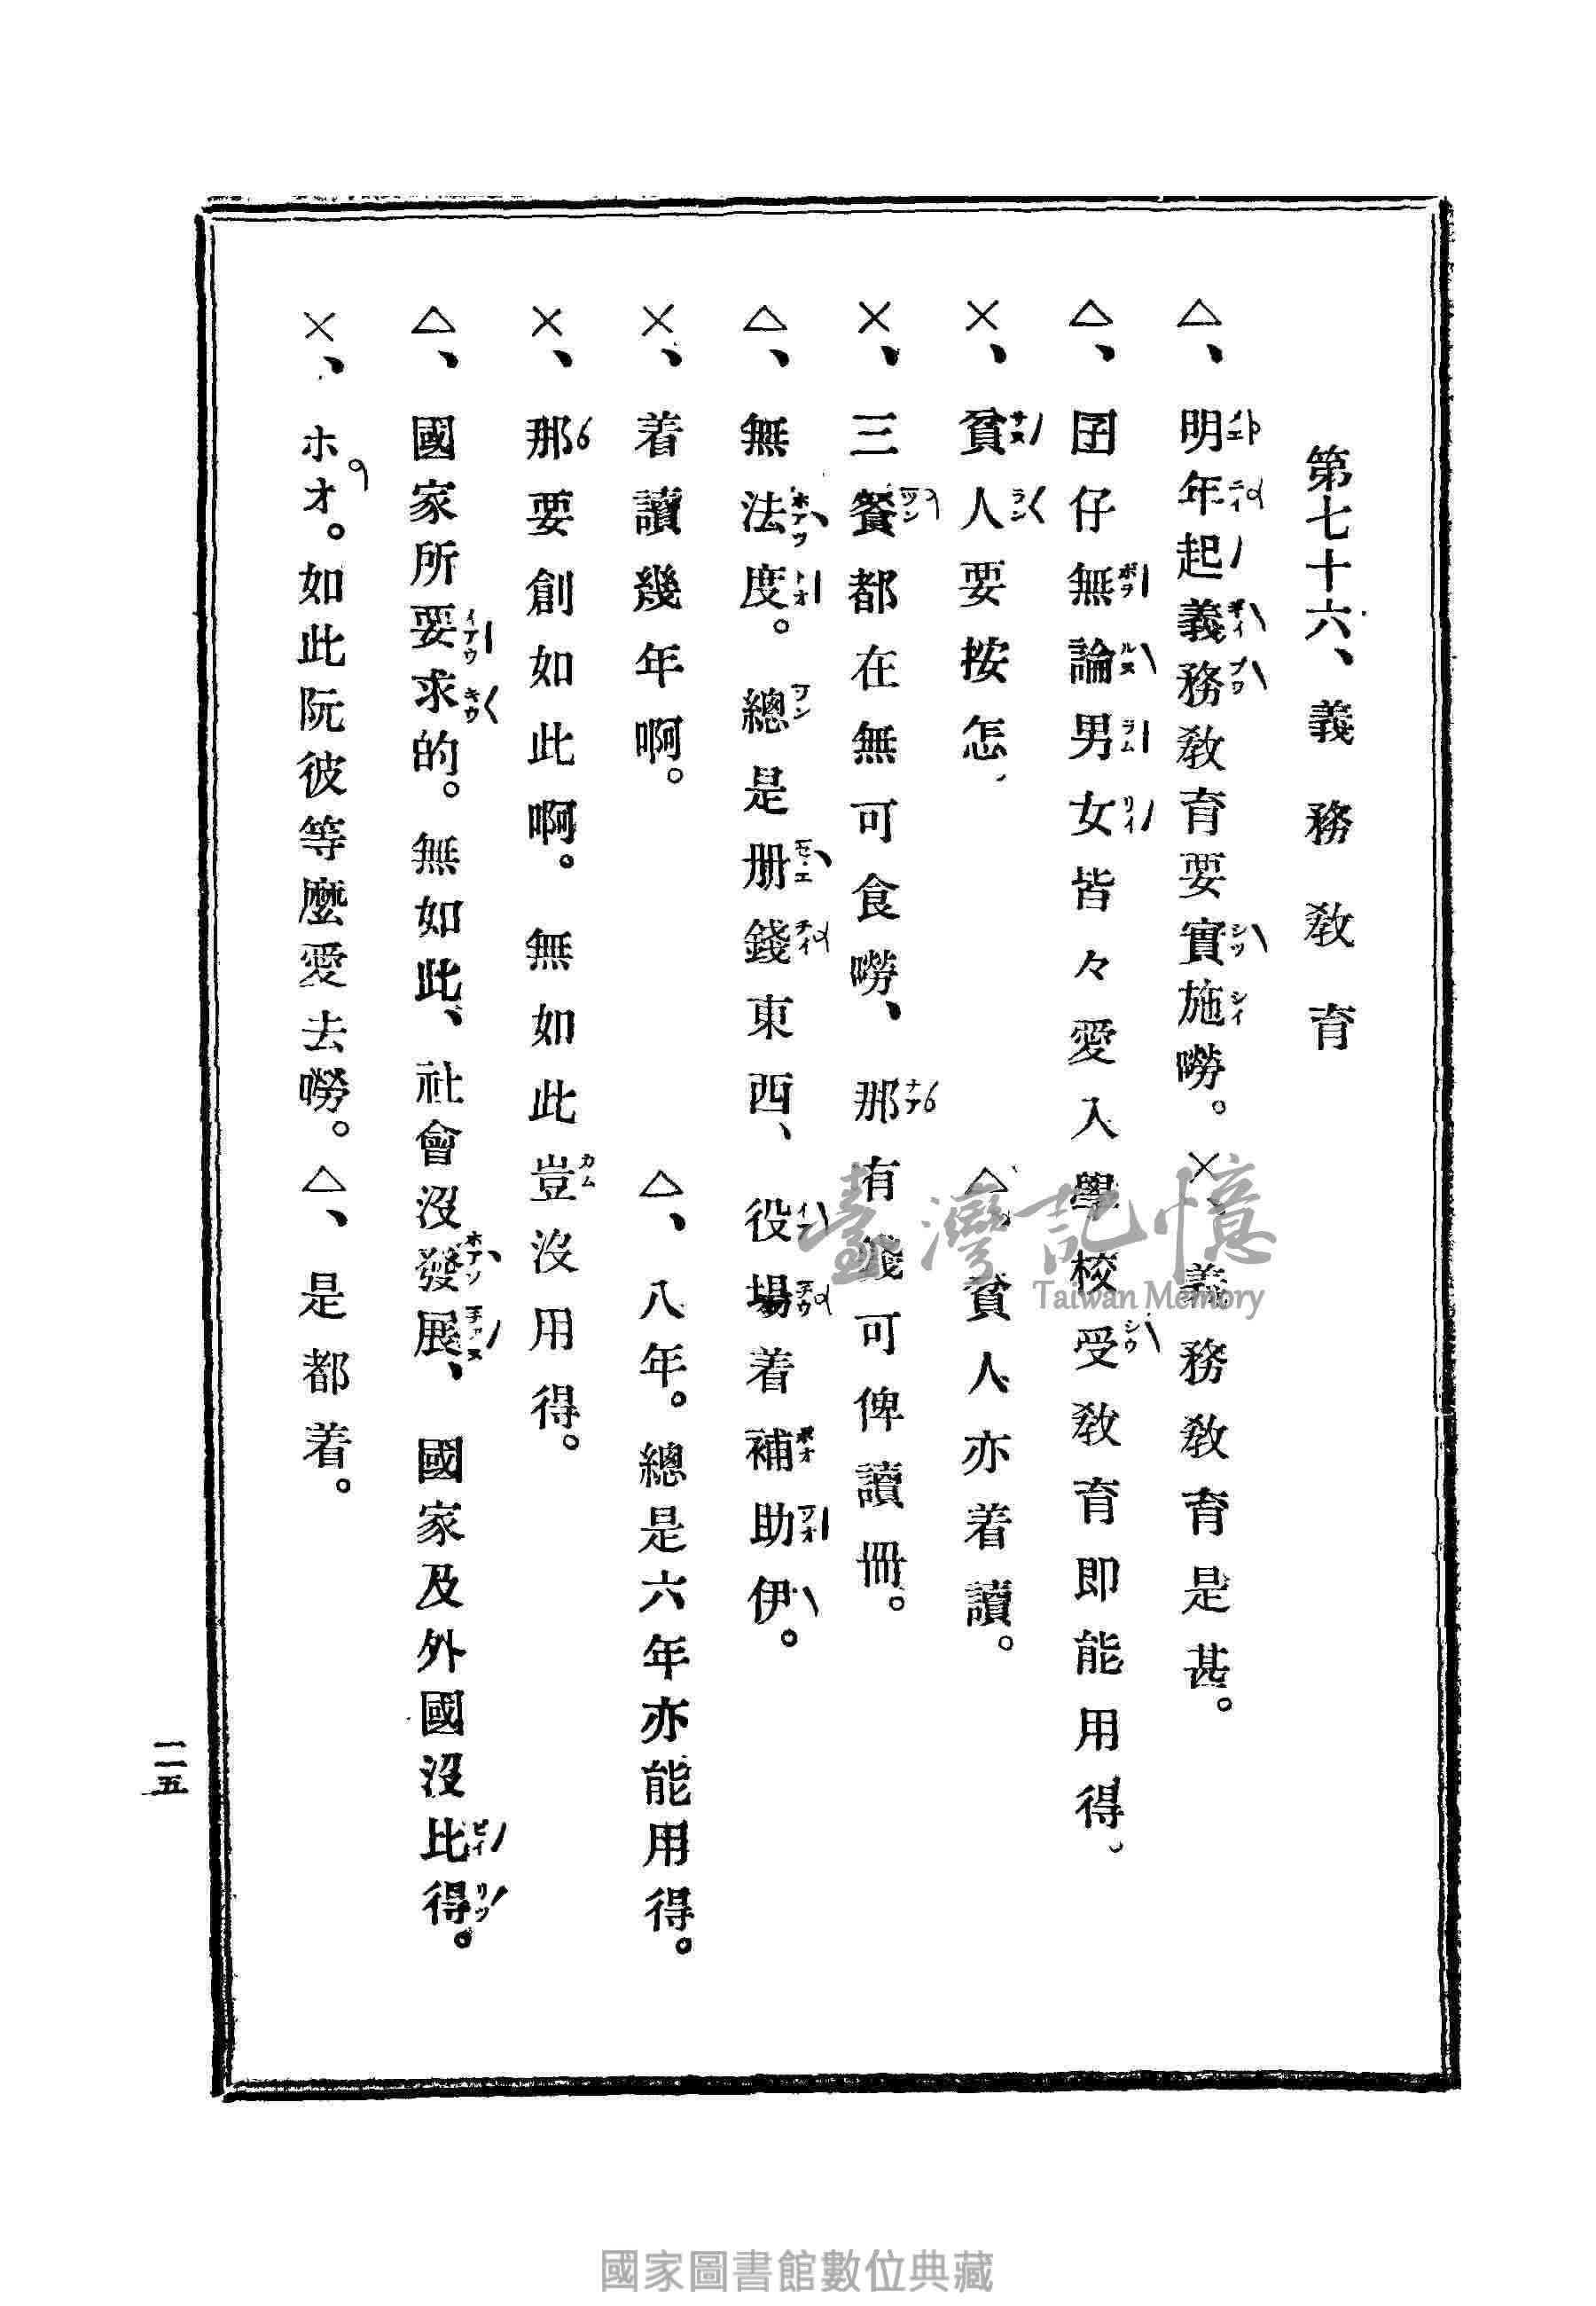 第七十六、義務教育
△、明年起義務教育要實施嘮。×、義務教育是甚。
△、囝仔無論男女皆々愛入學校受教育即能用得。
×、貧人要按怎、　△、貧人亦着讀。
×、三餐都在無可食嘮、那有錢可俾讀冊。
△、無法度。總是册錢東西、役場着補助伊。
×、着讀幾年啊。　△、八年。總是六年亦能用得。
×、那要創如此啊。無如此豈沒用得。
△、國家所要求的。無如此、社會沒發展、國家及外國沒比得。
×、ホオ。如此阮彼等麼愛去嘮。△、是都着。
一二五
臺灣記憶
Taiwan Memory
國家圖書館數位典藏